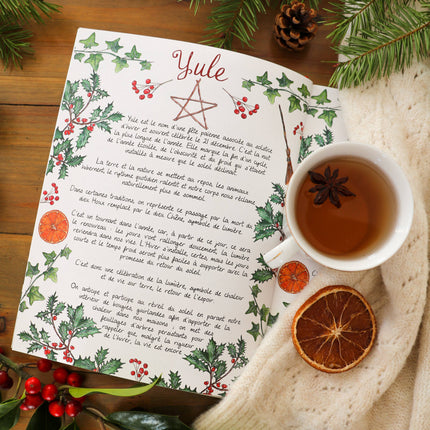 Yule
Yule est le nom d'une fête païenne associée au solstice
d'hiver et souvent célébrée le 21 décembre. C'est la nuit
la plus longue de l'année. Elle marque la fin d'un cycle,
de l'année écoulée, de l'obscurité et du froid qui s'étaient
installés à mesure que le soleil déclinait.
La terre et la nature se mettent au repos, les animaux
hibernent, le rythme quotidien ralenti et notre corps nous réclame
naturellement plus de sommeil.
Dans certaines traditions, on représente ce passage par la mort du
dieu Houx remplacé par le dieu Chêne, symbole de lumière
C'est un tournant dans l'année, car, à partir de ce jour, ce sera
le renouveau : les jours vont rallonger doucement, la lumière
reviendra dans nos vies. L'Hiver s'installe, certes, mais les jours
courts et le temps froid seront plus faciles à supporter avec la
promesse de retour du soleil.
C'est donc une célébration de la lumière, symbole de chaleur
et de vie sur terre, le retour de l'espoir.
On anticipe et participe au réveil du soleil en parant notre
intérieur de bougies, guirlandes afin d'apporter de la
chaleur dans nos maisons ; on met des
feuillages d'arbres persistants pour
rappeler que, malgré la rigueur
de l'hiver, la vie est encore